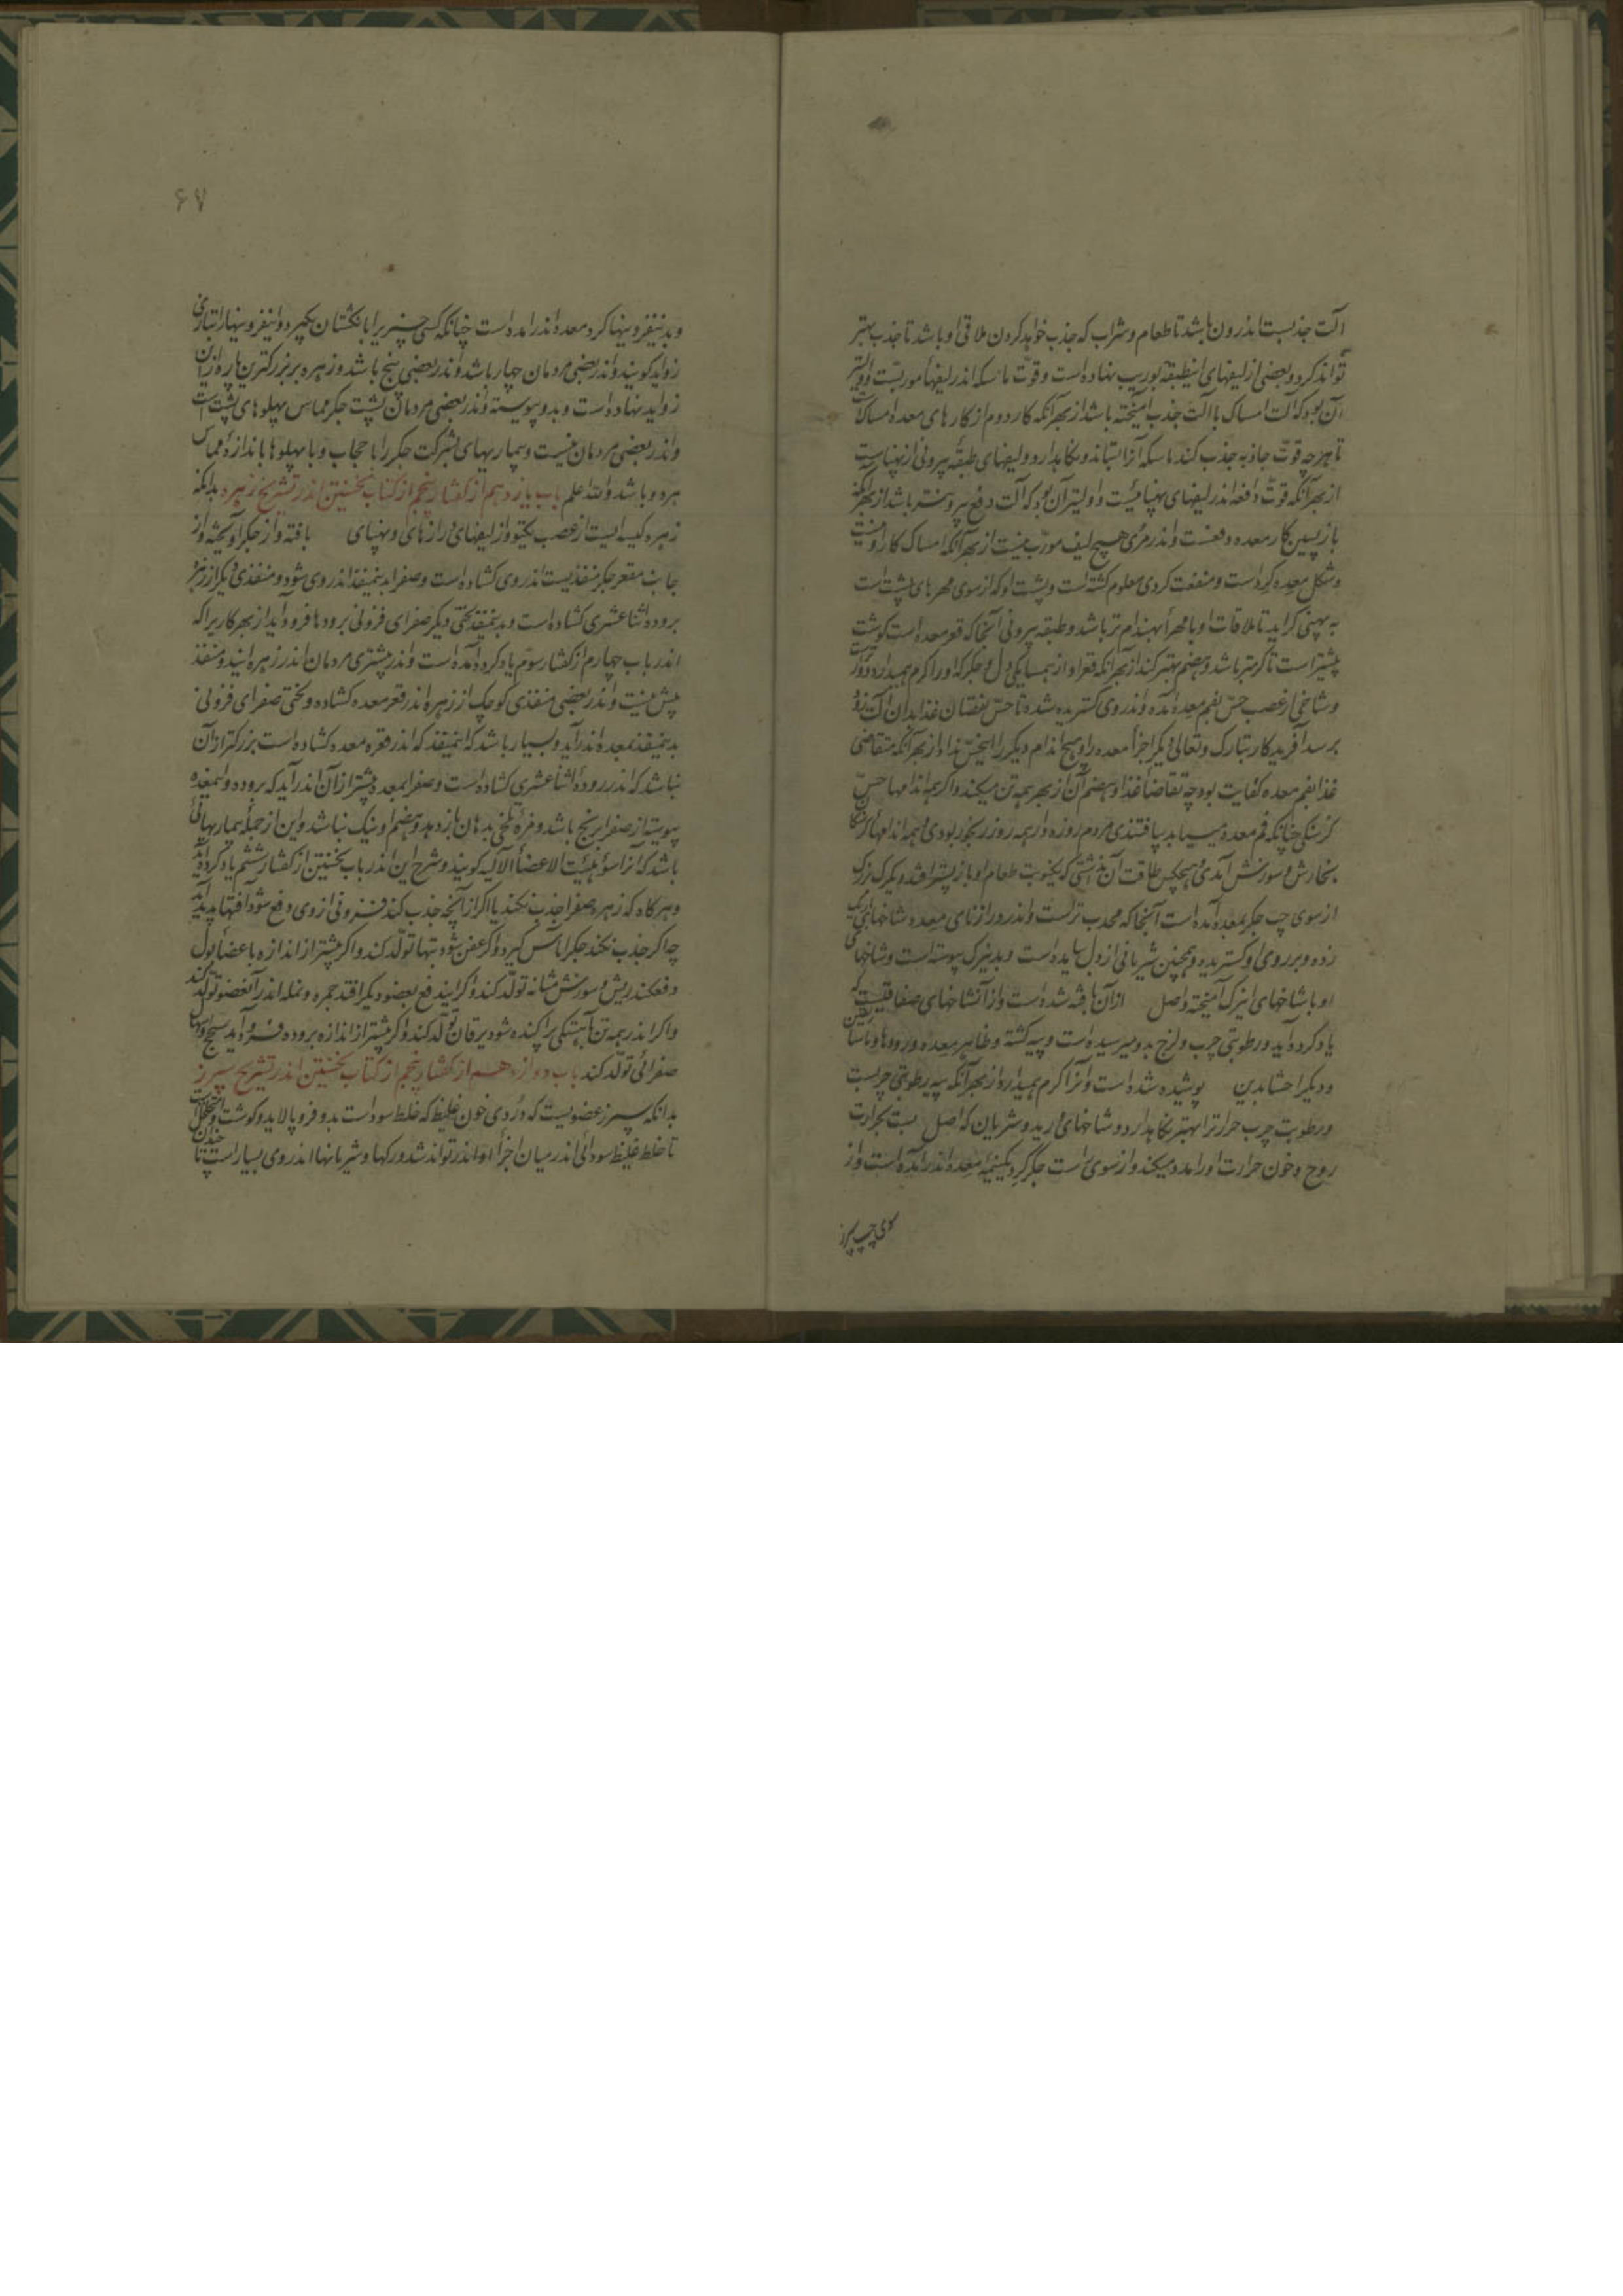 آلت جذبست اندرون باشد تا طعام و شراب که جذب خواهد کردن ملاقی او باشد تا جذب بهتر
تواند کرد و بعضی از لیفهای این طبقه بوریب نهاده است و قوّت ماسکه اندر لیفها مورّبست و اولیتر
آن بود که آلت امساک با آلت جذب آمیخته باشد از بهر آنکه کار دوم از کارهای معده امساکست
تا هر چه قوّت جاذبه جذب کند ماسکه آنرا بستاند و نگاهدارد و لیفهای طبقه بیرونی از پهناست
از بهر آنکه قوّت دافعه اندر لیفهای پهنائیست و اولیتر آن بود که آلت دفع بیرونتر باشد از بهر آنکه
بازپسین کار معده دفعست و اندر مری هیچ لیف مورّب نیست از بهر آنکه امساک کار او نیست
و شکل معده گرد است و منفعت گردی معلوم گشته است و پشت او که از سوی مهرهای پشت است
به پهنی گراید تا ملاقات او با مهرها بهندام تر باشد و طبقه بیرونی آنجا که قعر معده است گوشت
بیشتر است تا گرمتر باشد و هضم بهتر کند از بهر آنکه قعر او از همسایگی دل و جگر که او را گرم همیدارد دورتر است
و شاخی از عصب حسّ بفم معده آمده و اندر وی گستریده شده تا حسّ نقصان غذا بدان آلت زود
برسد آفریدگار تبارک و تعالی دیگر اجزا معده را و هیچ اندام دیگر را این حسّ نداد از بهر آنکه متقاضی
غذا فم معده کفایت بود چه تقاضا غذا و هضم آن از بهر همه تن میکند و اگر همه اندامها حسّ
گرسنگی چنانکه فم معده مییابد بیافتندی مردم روزه دار همه روز رنجور بودی و همه اندامها
بخارش و سوزش آمدی و هیچکس طاقت آن نداشتی که یکنوبت طعام او بازپستر افتد و یک رگ بزرگ
از سوی چپ جگر بمعده آمده است آنجا که محدب تر است و اندر درازنای معده شاخهای باریک
زده و بر روی او گستریده و همچنین شریانی از دل بیامده است و بدین رگ پیوسته است و شاخهای
او با شاخهای این رگ آمیخته و اصل از آن بافته شده است و از آن شاخهای صفاقیست که
یاد کرده آید و رطوبتی چرب و لزج بدو میرسیده است و پیه گشته و ظاهر معده و رودها و ماساریقی
و دیگر احشا بدین پوشیده شده است و آنرا گرم همیدارد از بهر آنکه پیه رطوبتی چربست
و رطوبت چرب حرارترا بهتر نگاهدارد و شاخهای اورید و شریان که اصل بست بحرارت
روح و خون حرارت او را مدد میکند و از سوی راست جگر گرد یکنیمه معده اندر آمده است و از
سوی چپ سپرز
۶۷
و بدینفزونیها گرد معده اندر آمده است چنانکه کسی چیزی را بانگشتان بگیرد و این فزونیها را بتازی
زواید گویند و اندر بعضی مردمان چهار باشد و اندر بعضی پنج باشد و زهره بر بزرگترین پاره ازین
زواید نهاده است و بدو پیوسته و اندر بعضی مردمان پشت جگر مماس پهلوهای پشت است
و اندر بعضی مردمان نیست و بیماریهای بشرکت جگر را با حجاب و با پهلوها باندازه مماس
هر دو باشد والله اعلم باب یازدهم از گفتار پنجم از کتاب نخستین اندر تشریح زهره بدانکه
زهره کیسه ایست از عصب یکتو و از لیفهای درازنای و پهنای بافته و از جگر آویخته و از
جانب مقعر جگر منفذیست اندر وی گشاده است و صفرا بدینمنفذ اندر وی شود و منفذی دیگر از زهره
بروده اثنا عشری گشاده است و بدینمنفذ لختی دیگر صفرای فزونی برودها فرود آید از بهر کاری را که
اندر باب چهارم از گفتار سوّم یاد کرده آمده است و اندر بیشتری مردمان اندر زهره ایندو منفذ
بیش نیست و اندر بعضی منفذی کوچک از زهره اندر قعر معده گشاده و لختی صفرای فزونی
بدینمنفذ بمعده اندر آید و بسیار باشد که اینمنفذ که اندر قعر معده گشاده است بزرگتر از آن
نباشد که اندر روده اثنا عشری گشاده است و صفرا بمعده بیشتر از آن اندر آید که بروده و اینمعده
پیوسته از صفرا برنج باشد و مزه تلخی بدهان باز دهد و هضم او نیک نباشد و این از جمله بیماریهائی
باشد که آنرا سوء هیئت الاعضاء الآلیه گویند و شرح این اندر باب نخستین از گفتار ششم یاد کرده آید
و هرگاه که زهره صفرا جذب نکند یا اگر از آنچه جذب کند فزونی از وی دفع نشود آفتها پدید آید
چه اگر جذب نکند جگر آماس گیرد و اگر عفن شود تبها تولّد کند و اگر بیشتر از اندازه باعضا بول
دفع کند ریش و سوزش مثانه تولّد کند و اگر ایندفع بعضو دیگر افتد حمره و نمله اندر آنعضو تولّد کند
و اگر اندر همه تن بآهستگی پراکنده شود یرقان تولّد کند و اگر بیشتر از اندازه بروده فرود آید سحج و اسهال
صفرائی تولّد کند باب دوازدهم از گفتار پنجم از کتاب نخستین اندر تشریح سپرز
بدانکه سپرز عضویست که دُردی خون غلیظ که خلط سوداست بدو فرو پالاید و گوشت او متخلخل است
تا خلط غلیظ سودائی اندر میان اجزاء او اندر تواند شد و رگها و شریانها اندر وی بسیار است تا چندان